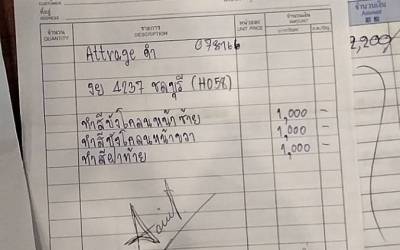 จำนวน QUANTITY รายการ DESCRIPTION หน่วยละ UNIT PRICE จำนวนเงิน AMOUNT
Attrage ดำ 078166
4237 ชลบุรี (H058)
ทำสีบังโคลนหน้าซ้าย 1,000 -
ทำสีบังโคลนหน้าขวา 1,000 -
ทำสีฝาท้าย 1,000 -
จำนวนเงิน
Amount
2,200